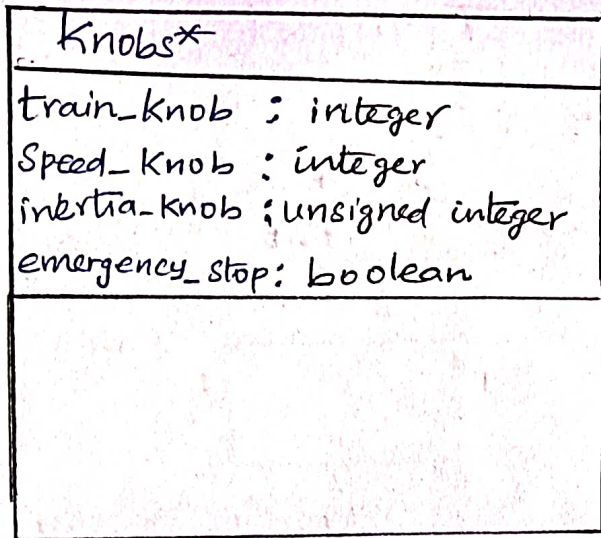 Knobs*
train_knob : integer
Speed_Knob : integer
inertia_knob : unsigned integer
emergency_stop: boolean